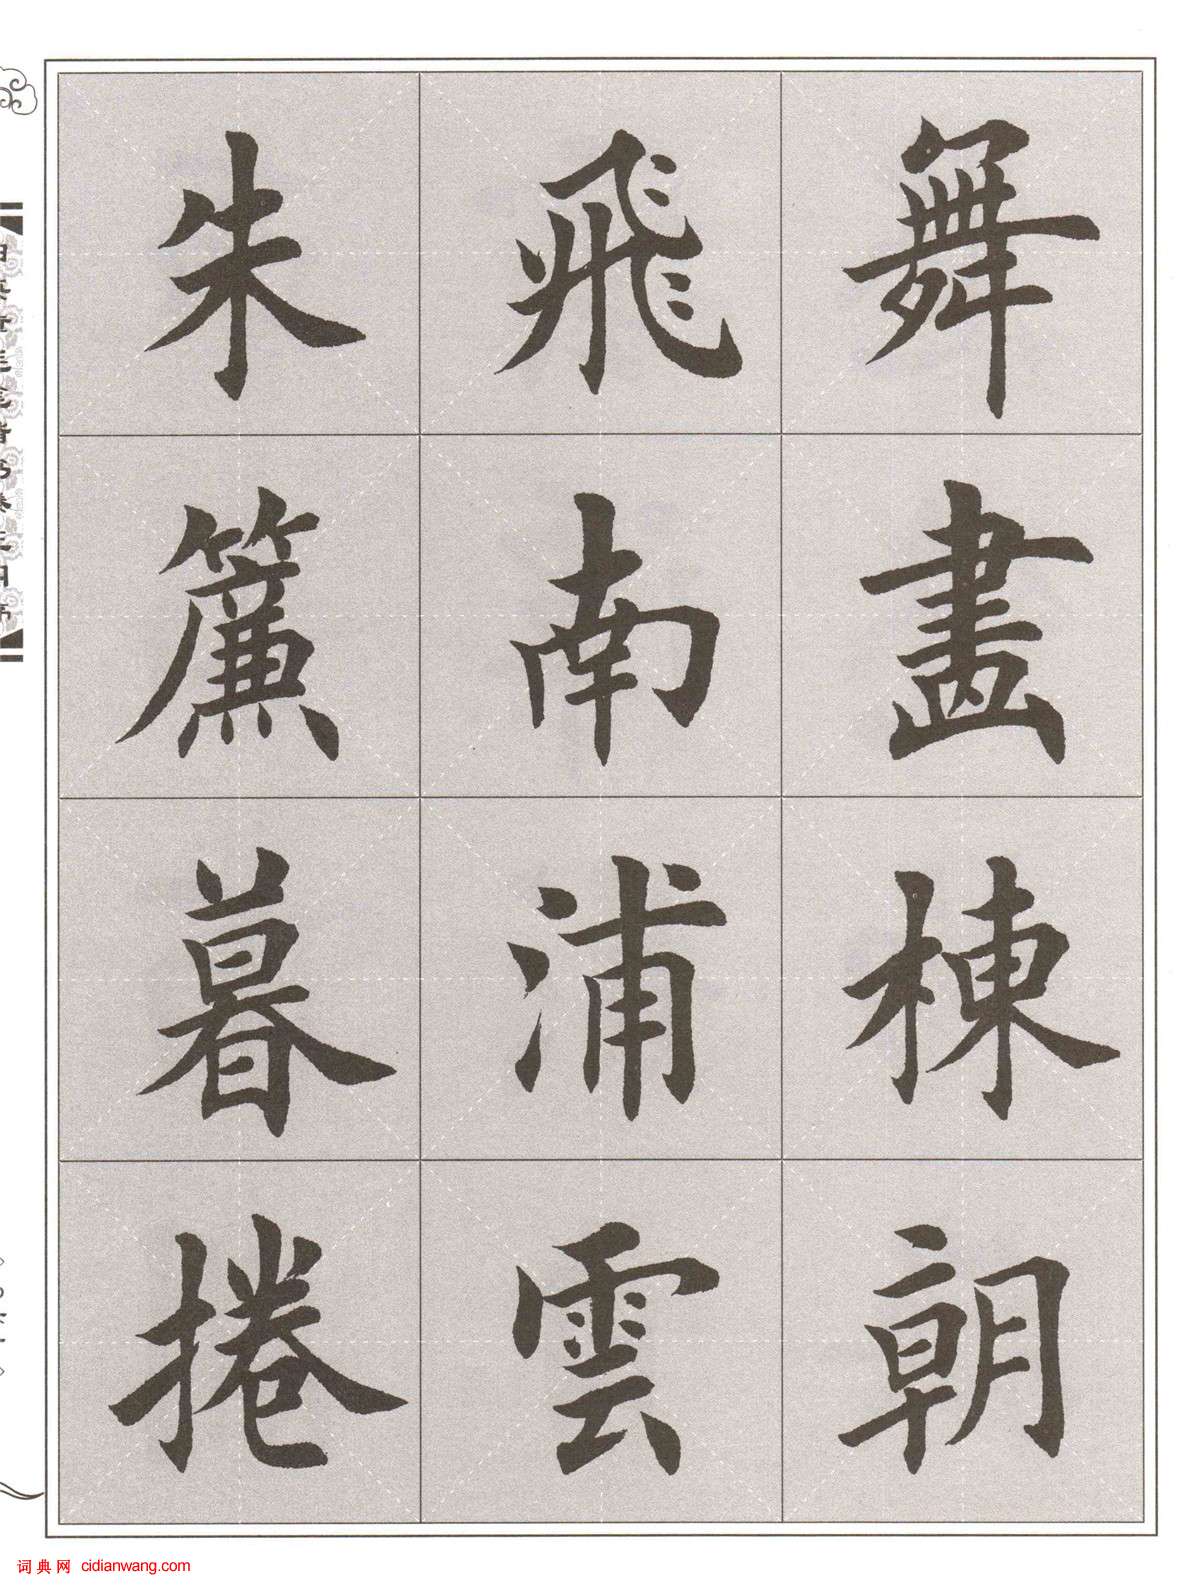 舞畫棟朝
飛南浦雲
朱簾暮捲
词典网 cidianwang.com